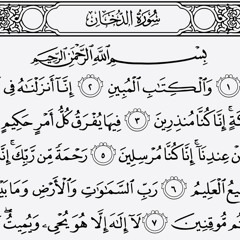 سُورَةُ الدُّخَانِ
بِسْمِ اللَّهِ الرَّحْمَٰنِ الرَّحِيمِ
١ وَالْكِتَٰبِ الْمُبِينِ ٢ إِنَّا أَنزَلْنَٰهُ فِى
ـةٍ إِنَّا كُنَّا مُنذِرِينَ ٣ فِيهَا يُفْرَقُ كُلُّ أَمْرٍ حَكِيمٍ
ـنْ عِندِنَا إِنَّا كُنَّا مُرْسِلِينَ ٥ رَحْمَةً مِّن رَّبِّكَ إِنَّـ
ـيعُ الْعَلِيمُ ٦ رَبِّ السَّمَٰوَٰتِ وَالْأَرْضِ وَمَا بَيْـ
ـم مُّوقِنِينَ ٧ لَآ إِلَٰهَ إِلَّا هُوَ يُحْىِۦ وَيُمِيتُ ۖ